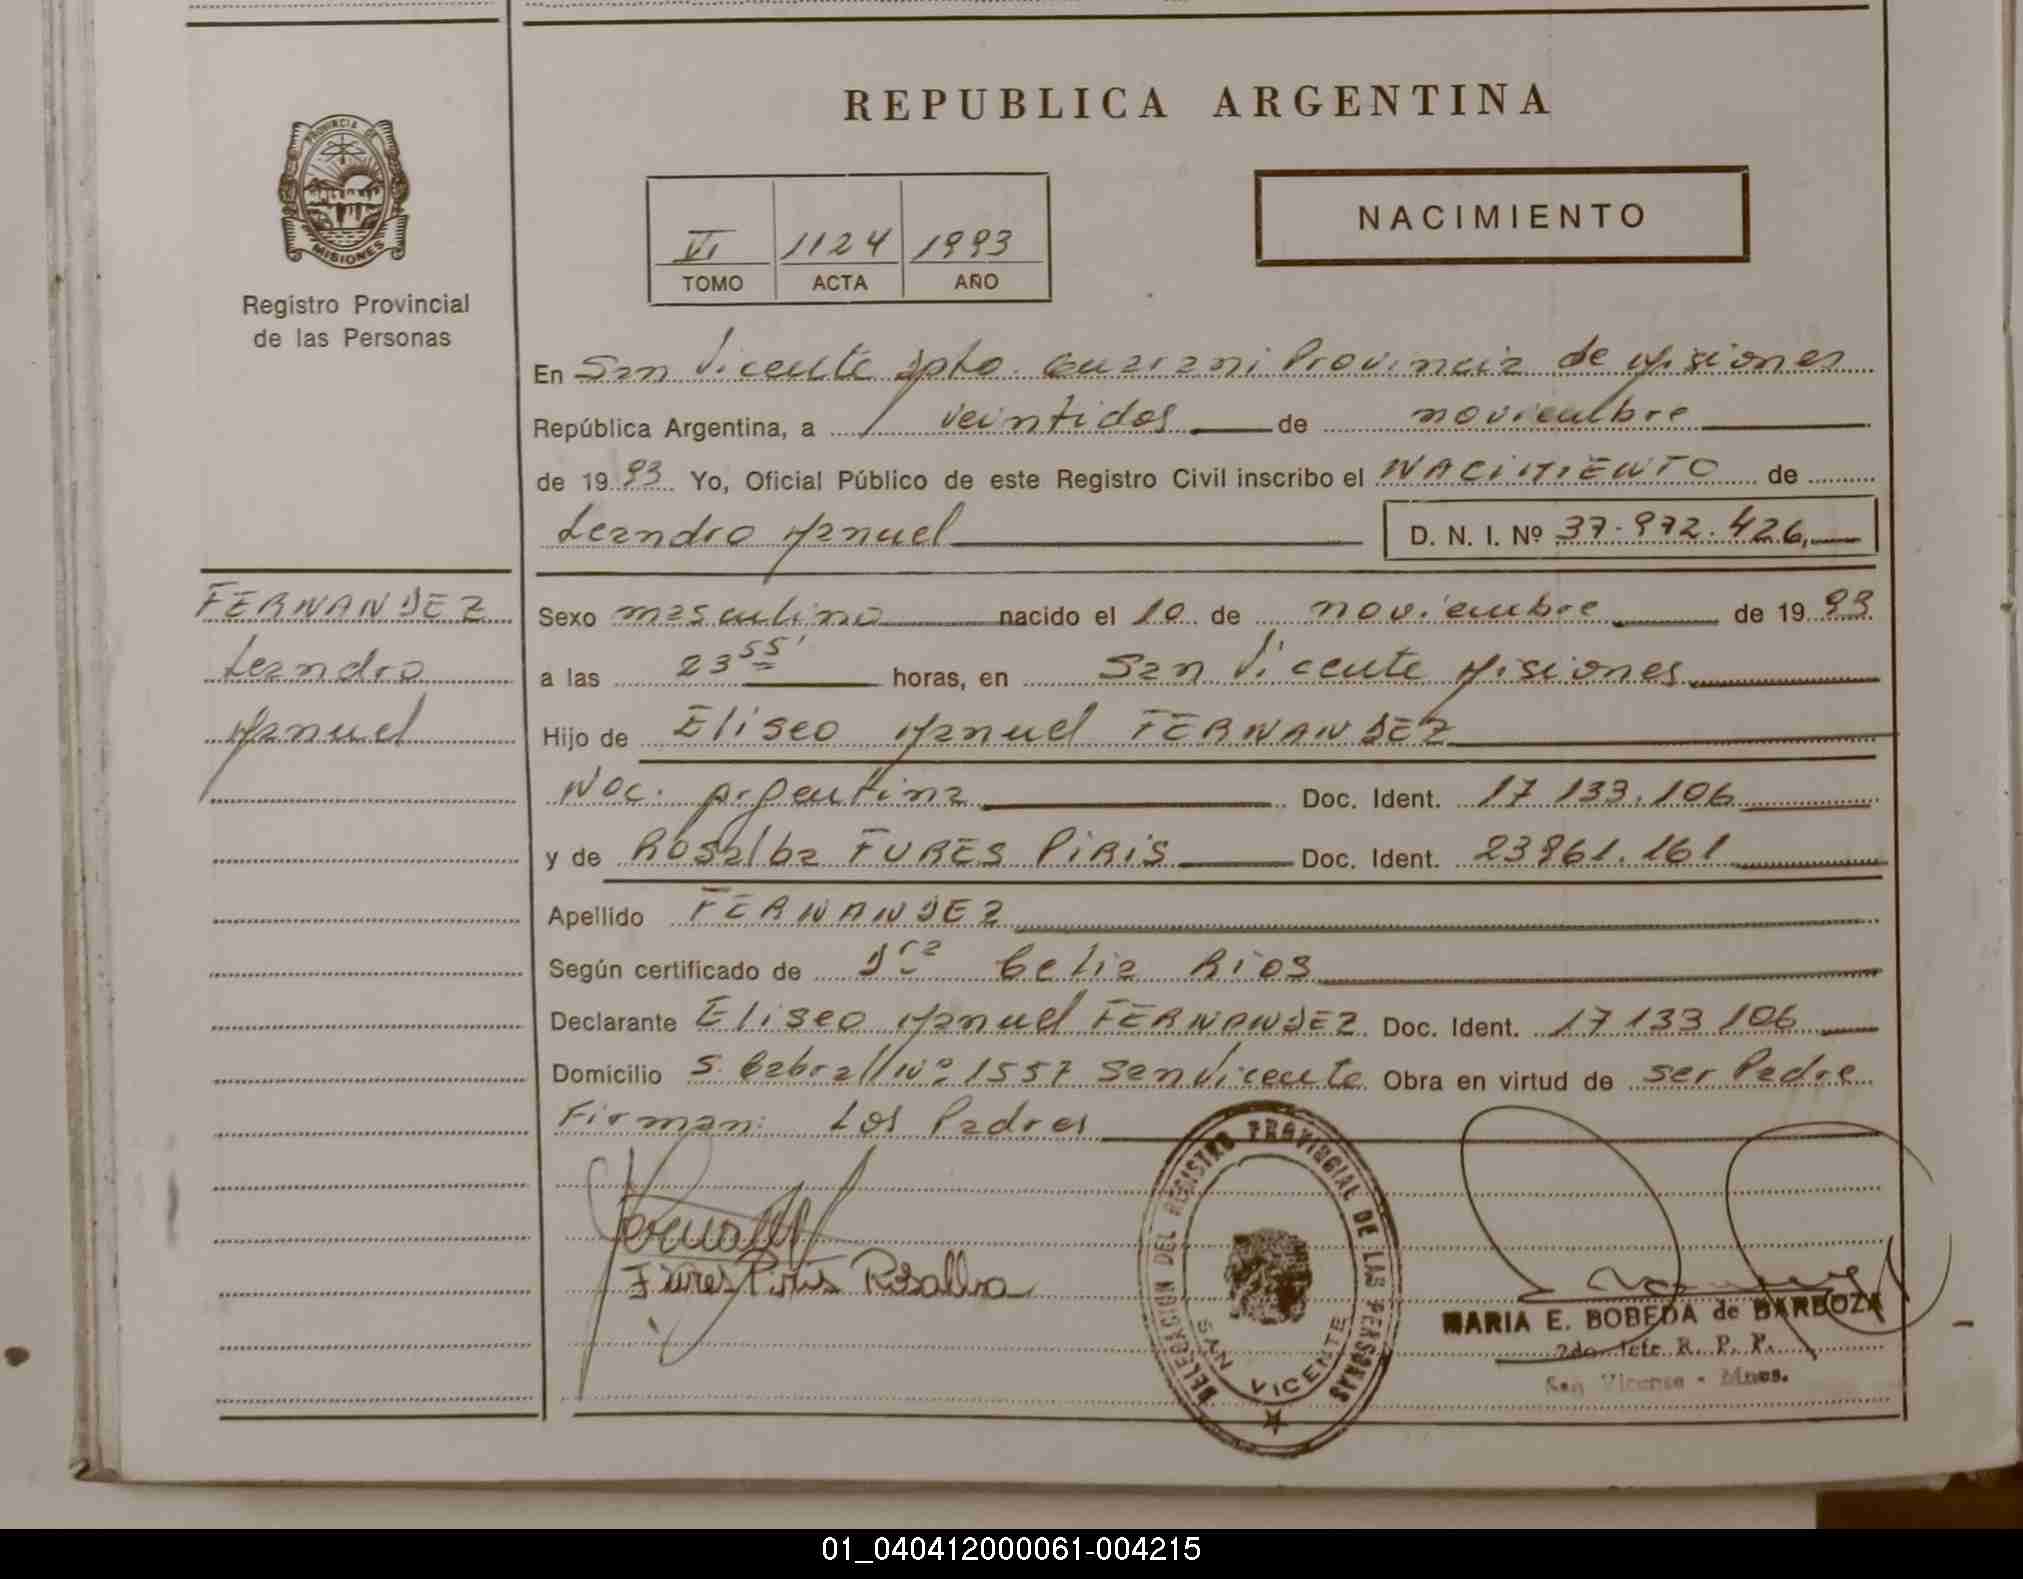 PROVINCIA DE
MISIONES
Registro Provincial
de las Personas
REPUBLICA ARGENTINA
NACIMIENTO
VI 1124 1993
TOMO ACTA AÑO
En San Vicente Dpto. Guarani Provincia de Misiones
República Argentina, a veintidos de noviembre
de 1993 Yo, Oficial Público de este Registro Civil inscribo el NACIMIENTO de
Leandro Manuel D. N. I. Nº 37.972.426
FERNANDEZ
Leandro
Manuel
Sexo masculino nacido el 10 de noviembre de 1993
a las 23 55' horas, en San Vicente Misiones
Hijo de Eliseo Manuel FERNANDEZ
Nac. Argentina Doc. Ident. 17 133.106
y de Rosalba FURES PIRIS Doc. Ident. 23961.161
Apellido FERNANDEZ
Según certificado de Dra Celia Rios
Declarante Eliseo Manuel FERNANDEZ Doc. Ident. 17 133 106
Domicilio S. Cabral Nº 1557 San Vicente Obra en virtud de ser Padre
Firman: Los Padres
Fures Piris Rosalba
DELEGACION DEL REGISTRO PROVINCIAL DE LAS PERSONAS
SAN VICENTE
MARIA E. BOBEDA de BARBOZA
2do. Jefe R. P. P.
San Vicente - Mnes.
01_040412000061-004215